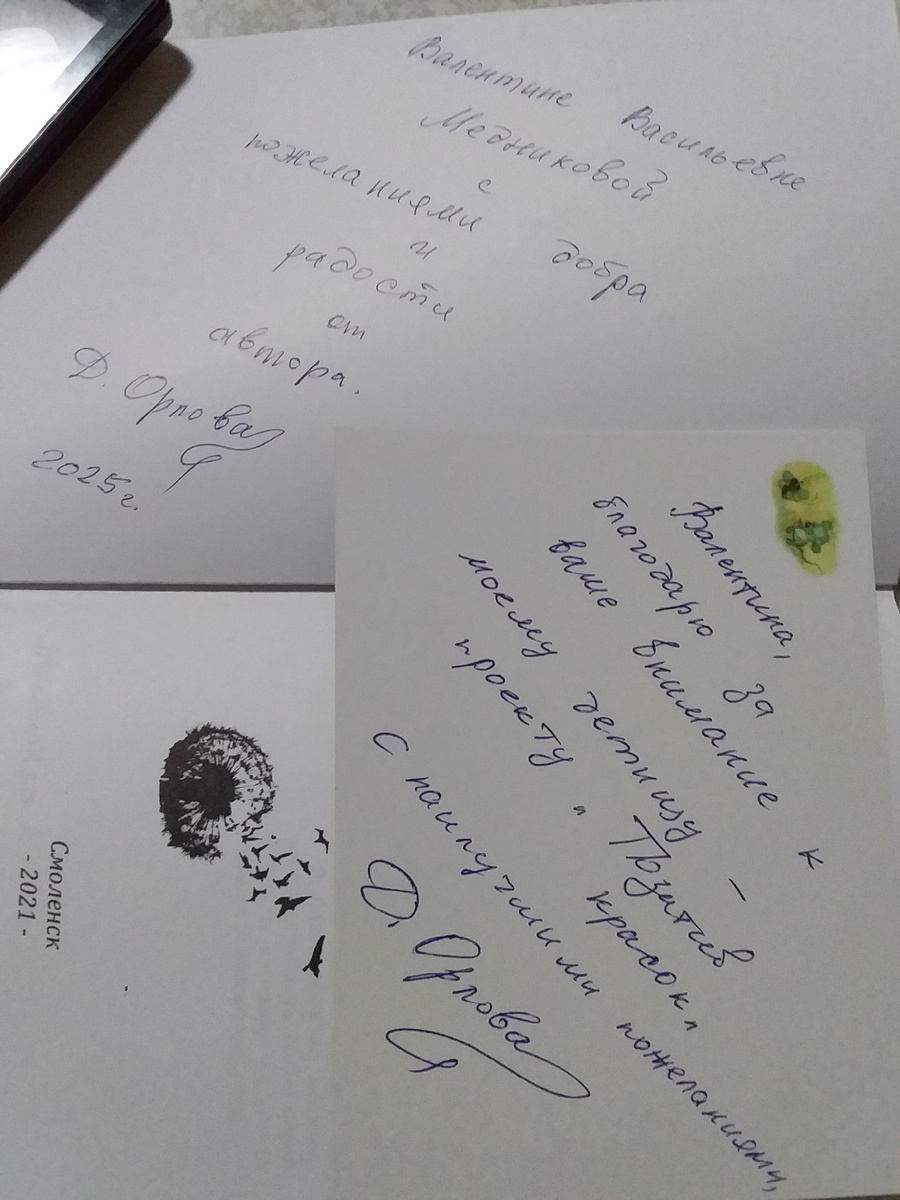 Валентине Васильевне
Медниковой
с
пожеланиями добра
и
радости
от
автора.
Д. Орлова
2025г.
Валентина,
благодарю за
ваше внимание к
моему детищу –
проекту "Позитив
красок"
С наилучшими пожеланиями,
Д. Орлова
Смоленск
- 2021 -